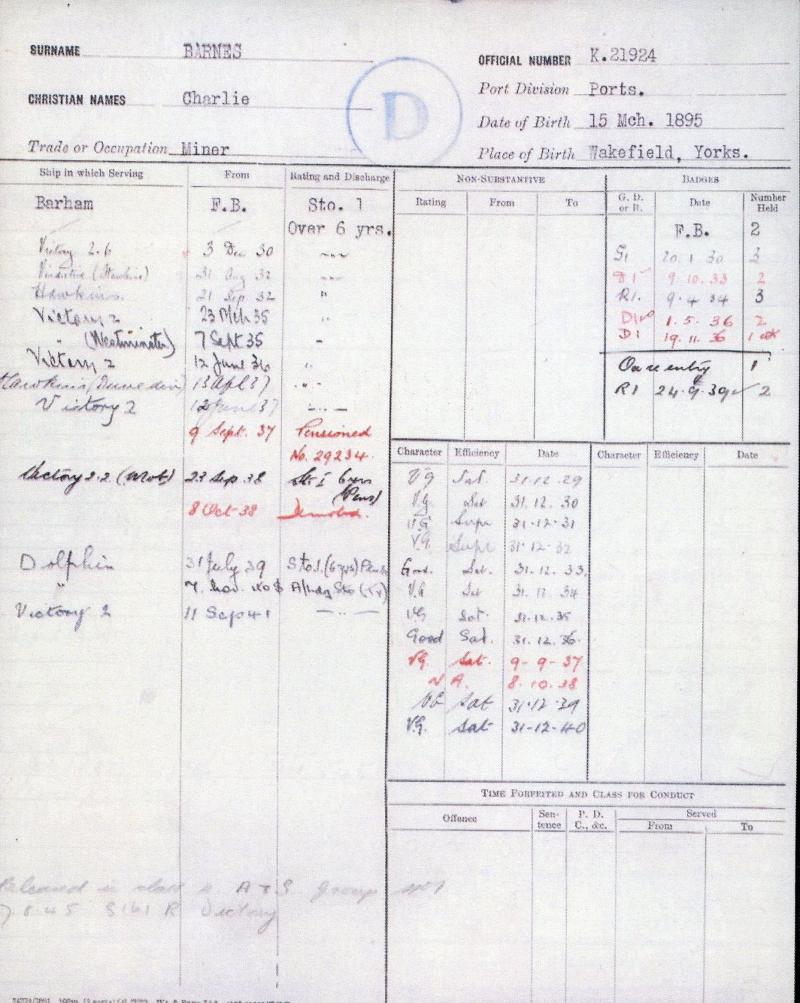 SURNAME BARNES
OFFICIAL NUMBER K.21924
CHRISTIAN NAMES Charlie
D
Port Division Ports.
Date of Birth 15 Mch. 1895
Trade or Occupation Miner
Place of Birth Wakefield, Yorks.
Ship in which Serving From Rating and Discharge
Barham F.B. Sto. 1
Over 6 yrs.
Victory 3 Dec 30
31 Aug 32
Hawkins 21 Sep 32 "
Victory 2 23 Mch 35
(Westminster) 7 Sept 35
Victory 2 12 June 36
Hawkins (Dunedin) 13 Apl 37
Victory 2 12 June 37
9 Sept. 37 Pensioned
No. 29234
23 Sep 38 Sto I
(Pens)
8 Oct 38
Dolphin 31 July 39 Sto.1.
" 7. Nov. A/Ldg Sto
Victory 2 11 Sep 41
Released in class A
Victory
NON-SUBSTANTIVE
Rating From To
BADGES
G. D. or R. Date Number Held
F.B. 2
G1 20. 1. 30 3
9. 10. 33 2
R1. 9. 4. 34 3
1. 5. 36 2
D1 19. 11. 36 1
On re entry 1
R1 24.9.39 2
Character Efficiency Date Character Efficiency Date
VG Sat. 31.12.29
VG Sat 31.12.30
VG Supr 31.12.31
VG. Supr 31.12.32
Good. Sat. 31.12.33.
VG Sat 31.12.34
VG Sat. 31.12.35
Good Sat. 31.12.36.
VG. Sat. 9-9-37
N A. 8.10.38
VG Sat 31.12.39
VG. Sat 31-12-40
TIME FORFEITED AND CLASS FOR CONDUCT
Offence Sentence P. D. C., &c. Served
From To